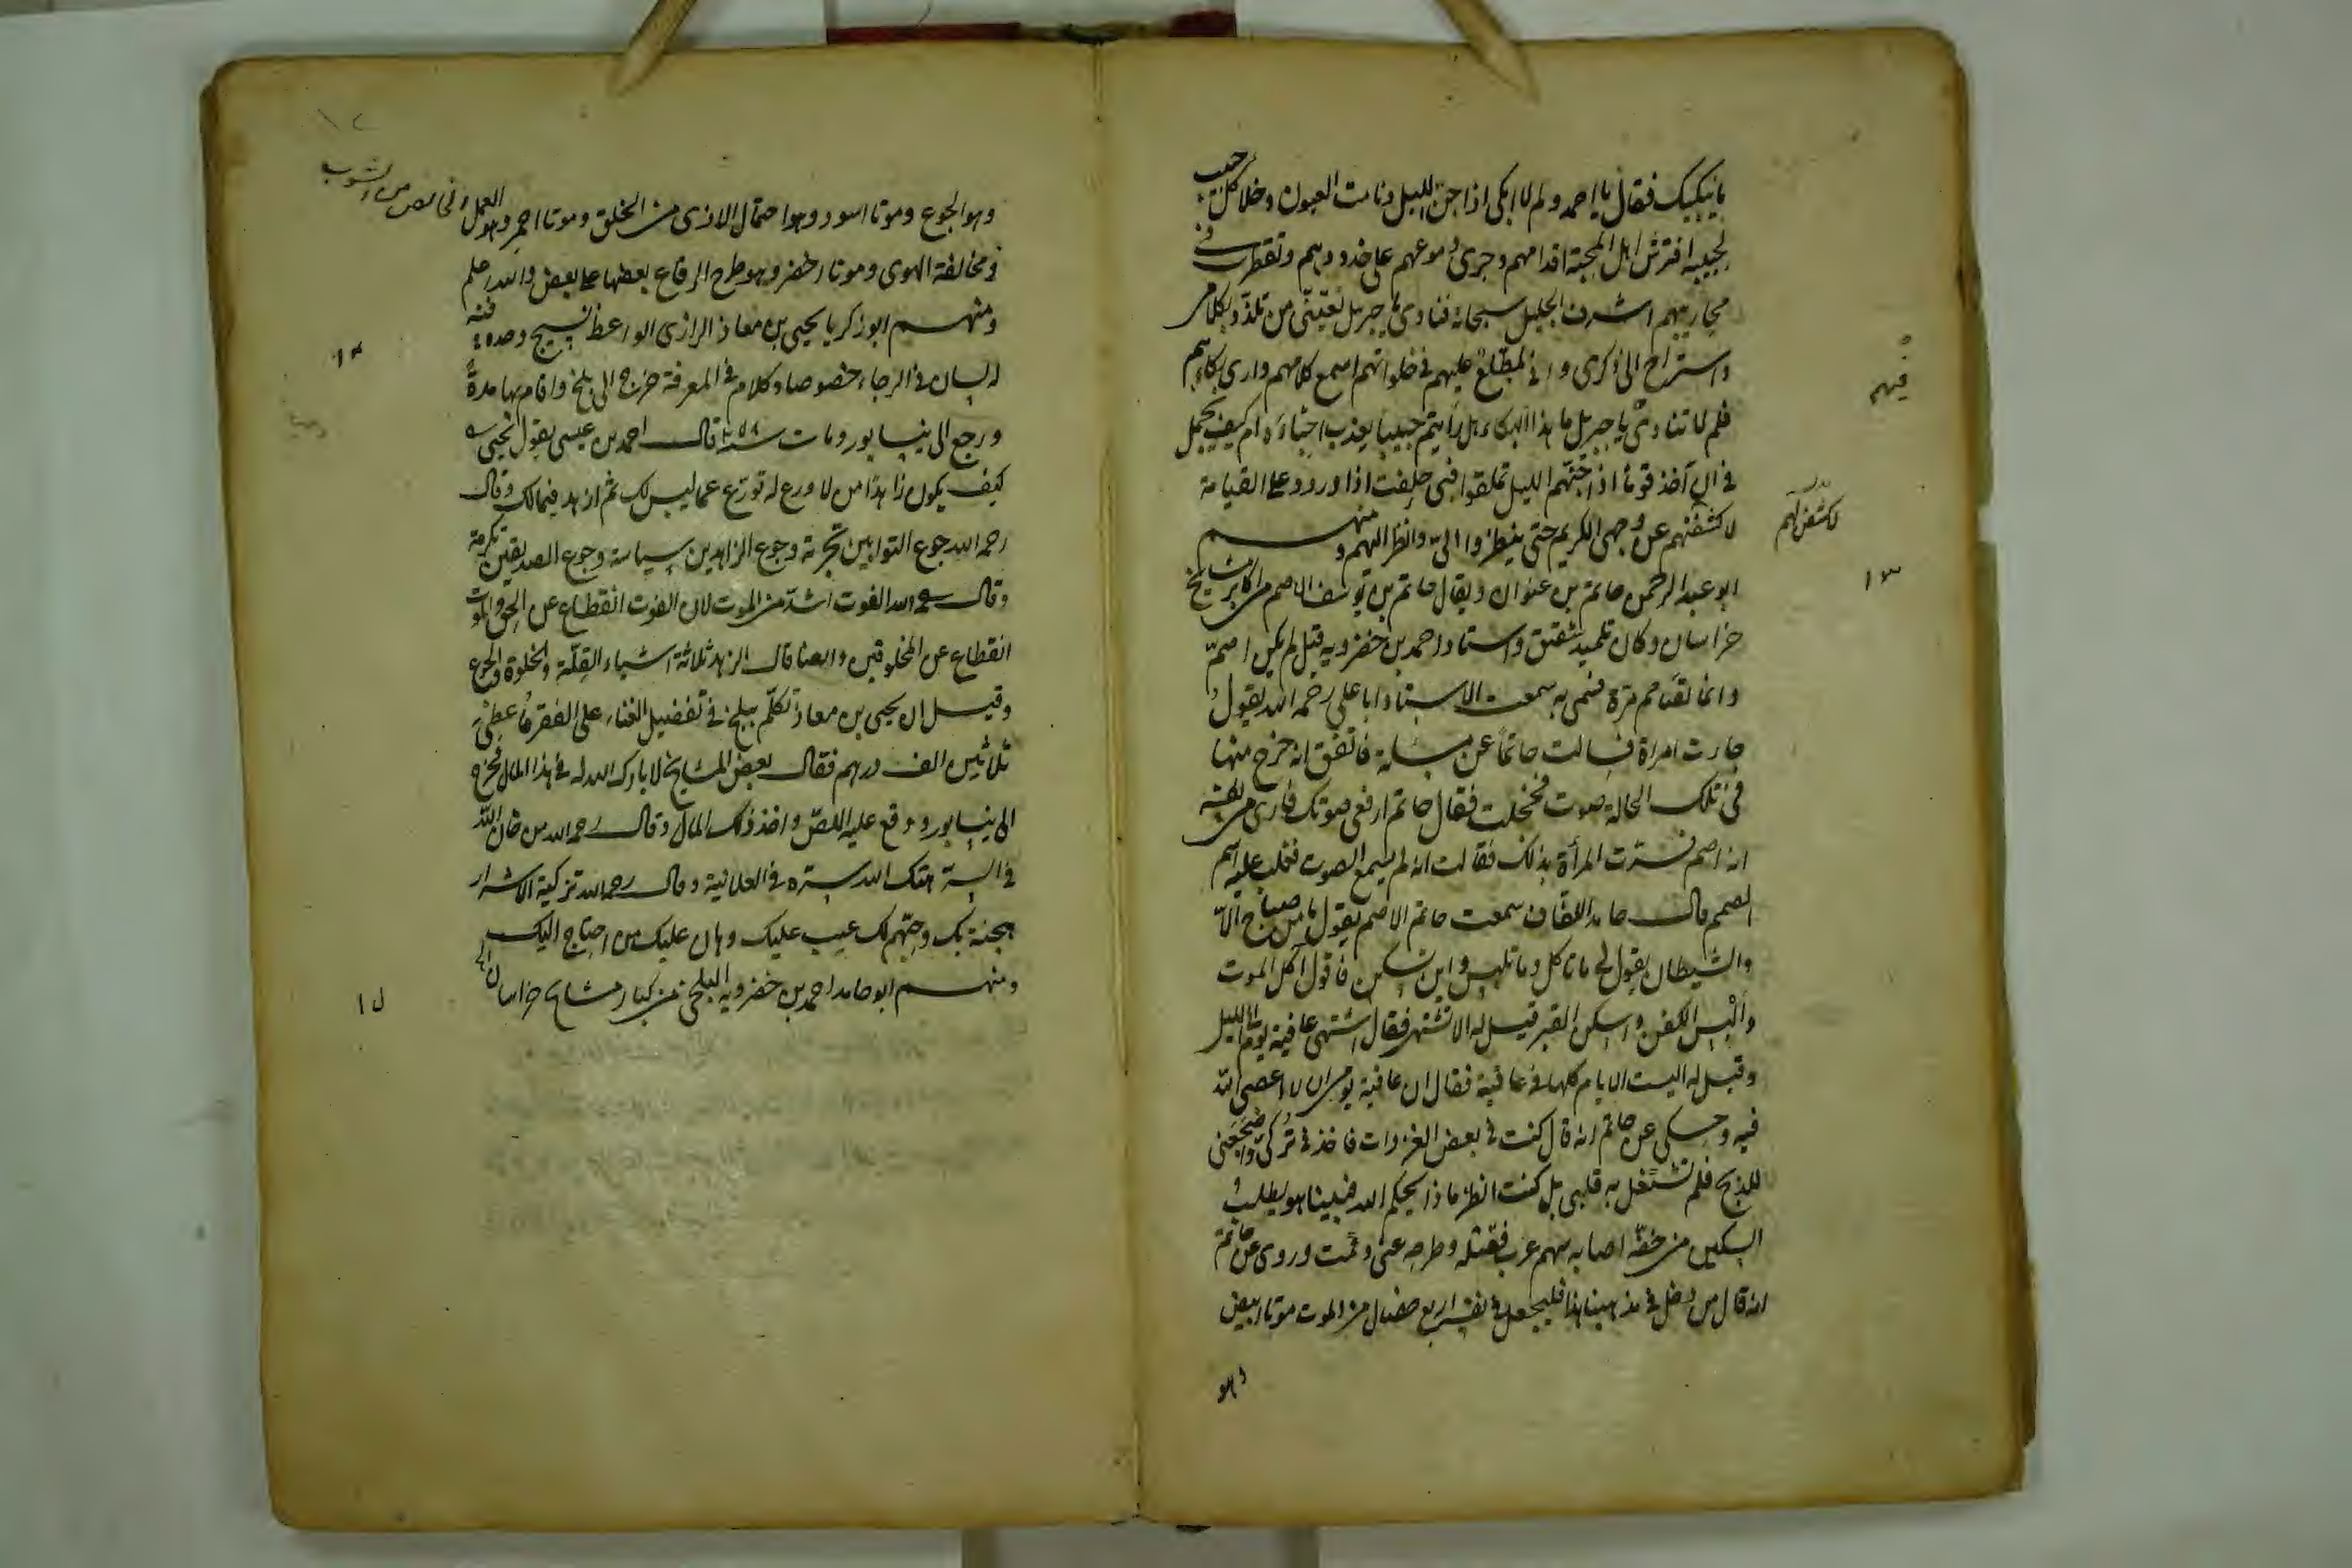 ما يبكيك فقال يا احمد ولم لا ابكى اذا جن الليل ونامت العيون وخلا كل حبيب
بحبيبه افترش اهل المحبة اقدامهم وجرى دموعهم على خدودهم وتقطرت في
محاريبهم اشرف الجليل سبحانه فنادى يا جبريل بعينى من تلذذ بكلامى
واستراح الى ذكرى وانى لمطلع عليهم في خلواتهم اسمع كلامهم وارى بكاءهم
فلم لا تنادى يا جبريل ما هذا البكاء هل رأيتم حبيبا يعذب احباءه ام كيف يجمل
في ان آخذ قوما اذا جنهم الليل تملقوا فبى حلفت اذا وردوا على القيامة
لاكشفنهم عن وجهى الكريم حتى ينظروا الىّ وانظر اليهم ومنهم
ابو عبد الرحمن حاتم بن عنوان ويقال حاتم بن يوسف الاصم من اكابر مشايخ
خراسان وكان تلميذ شقيق واستاد احمد بن خضرويه قيل لم يكن اصمّ
وانما تصامم مرة فسمى به سمعت الاستاد ابا على رحمه الله يقول
جارت امراة فسالت حاتما عن مسئلة فاتفق انه خرج منها
في تلك الحالة صوت فخجلت فقال حاتم ارفعى صوتك فارى من نفسه
انه اصم فسرّت المرأة بذلك فقالت انه لم يسمع الصوت فغلب عليه اسم
الصمم قال حامد اللفاف سمعت حاتم الاصم يقول ما من صباح الّا
والشيطان يقول لى ما تاكل وما تلبس واين تسكن فاقول آكل الموت
وألبس الكفن واسكن القبر قيل له الا تشتهى فقال اشتهى عافية يوم الى الليل
وقيل له اليست الايام كلها في عافية فقال ان عافية يومى ان لا اعصى الله
فيه وحكى عن حاتم انه قال كنت في بعض الغزوات فاخذنى تركىّ واضجعنى
للذبح فلم تشتغل به قلبى بل كنت انظر ماذا يحكم الله فبينا هو يطلب
السكين من خفه اصابه سهم غرب فقتله وطرحه عنى وقمت وروى عن حاتم
انه قال من دخل في مذهبنا هذا فليجعل في نفسه اربع خصال من الموت موتا ابيض
وهو
فيهم
لاكشفن لهم
١٣
١٢
وهو الجوع وموتا اسود وهو احتمال الاذى من الخلق وموتا احمر وهو العمل الخالص من الشوب
ومخالفة الهوى وموتا اخضر وهو طرح الرقاع بعضها على بعض والله اعلم
ومنهم ابو زكريا يحيى بن معاذ الرازى الواعظ نسيج وحده في فنه
له لسان في الرجاء خصوصا وكلام في المعرفة خرج الى بلخ واقام بها مدة
ورجع الى نيسابور ومات سنة ٢٥٨ قال احمد بن عيسى يقول يحيى
كيف يكون زاهدا من لا ورع له تورّع عما ليس لك ثم ازهد فيما لك وقال
رحمه الله جوع التوابين تجربة وجوع الزاهدين سياسة وجوع الصديقين تكرمة
وقال رحمه الله الفوت اشدّ من الموت لان الفوت انقطاع عن الحق والموت
انقطاع عن المخلوقين وايضا قال الزهد ثلاثة اشياء القلّة والخلوة والجوع
وقيل ان يحيى بن معاذ تكلّم ببلخ في تفضيل الغناء على الفقر فأعطى
ثلاثين الف درهم فقال بعض المشايخ لا بارك الله له في هذا المال فخرج
الى نيسابور ووقع عليه اللص واخذ ذلك المال وقال رحمه الله من خان الله
في السرّ هتك الله ستره في العلانية وقال رحمه الله تزكية الاشرار
هجنة بك وحبّهم لك عيب عليك وهان عليك من احتاج اليك
ومنهم ابو حامد احمد بن خضرويه البلخى من كبار مشايخ خراسان
١٤
١٥